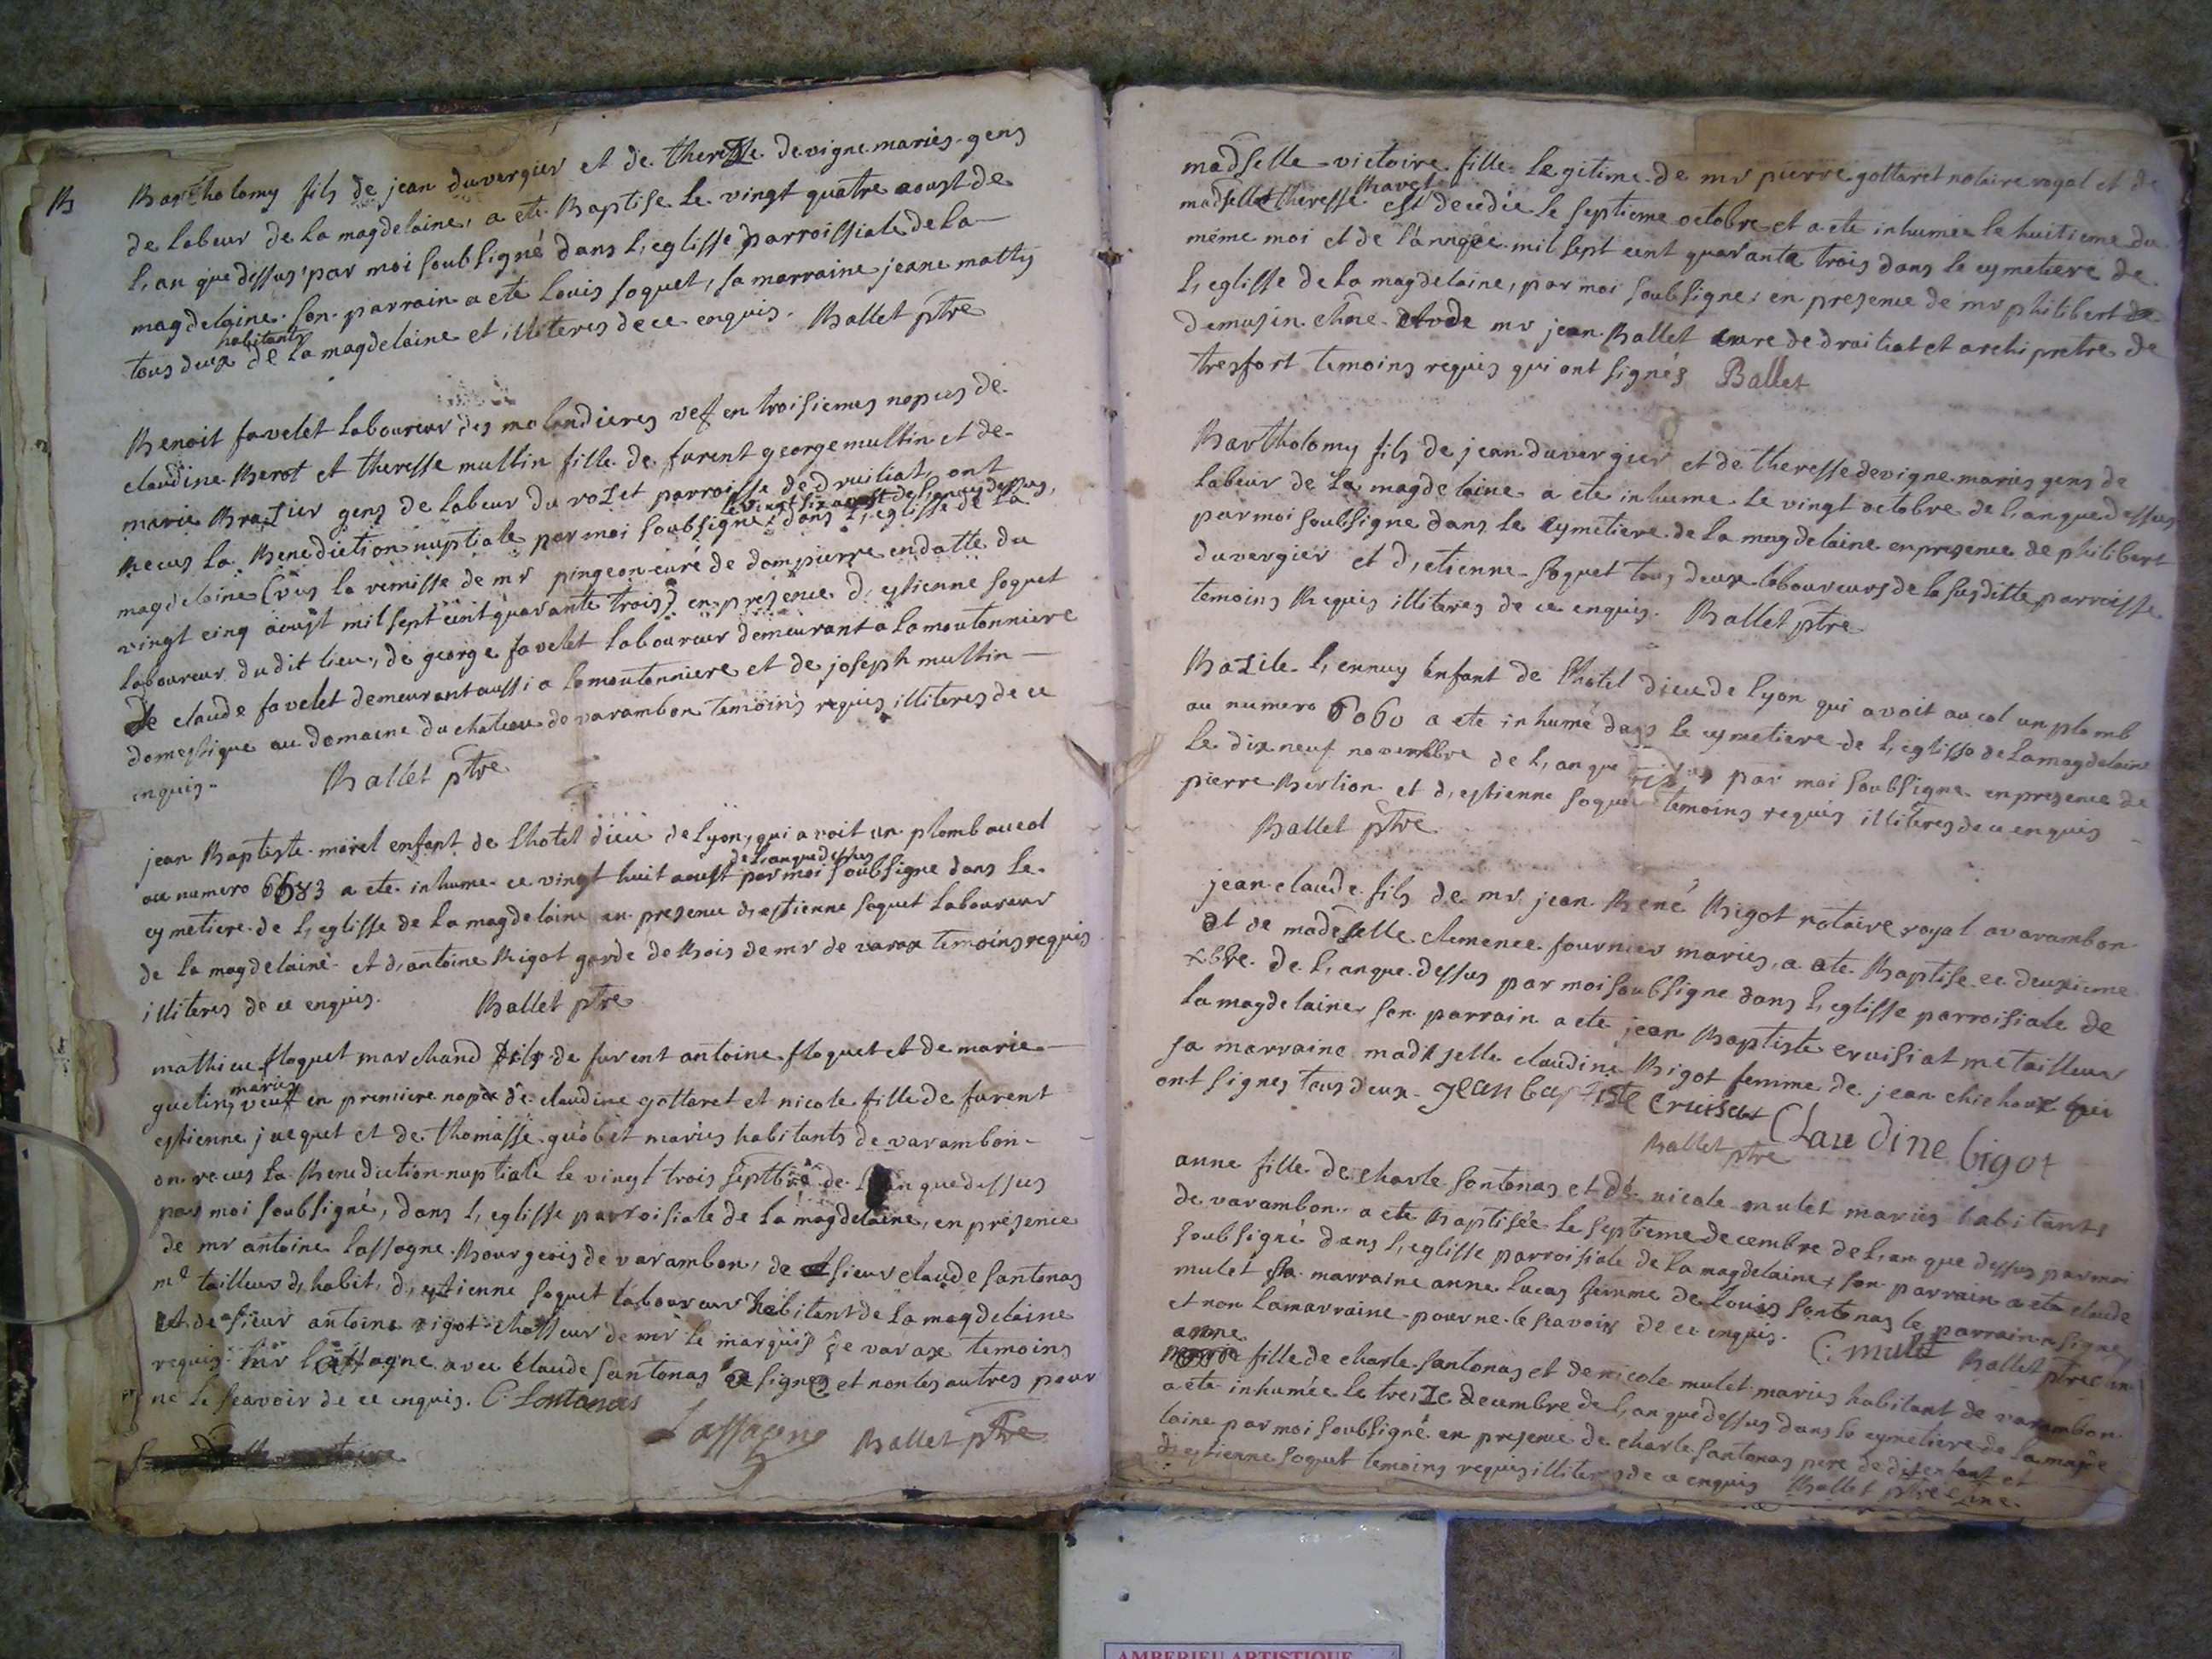 B
Bartholomy fils de jean duvergier et de theresse devigne mariés gens
de labeur de la magdelaine, a ete Baptise le vingt quatre aoust de
l,an que dessus par moi soubsigné dans l,eglisse parroissiale de la
magdelaine. son parrain a ete louis soquet, sa marraine jeane mattis
tous deux habitants de la magdelaine et illiteres de ce enquis. Ballet ptre
Benoit favelet laboureur des molandieres vef en troisiemes nopces de
claudine Berot et theresse multin fille de furent george multin et de
marie Brazier gens de labeur du rozet parroisse de druiliat, ont
le vingt six aoust de l'année dessus,
Recus la Benediction nuptiale par moi soubsigné dans l,eglisse de la
magdelaine (vus la remisse de mr pingeon curé de dompierre en datte du
vingt cinq aoust mil sept cent quarante trois) en presence d,estienne soquet
laboureur dudit lieu, de george favelet laboureur demeurant a la moutonniere
de claude favelet demeurant aussi a la moutonniere et de joseph multin
domestique au domaine du chateau de varambon temoins requis illiteres de ce
enquis. Ballet ptre
jean Baptiste morel enfant de l'hotel dieu de lyon, qui avoit un plomb au col
de l,an que dessus
au numero 6583 a ete inhume ce vingt huit aoust par moi soubsigne dans le
cymetiere de l,eglisse de la magdelaine en presence d,estienne soquet laboureur
de la magdelaine et d,antoine Bigot garde de Bois de mr de varax temoins requis
illiteres de ce enquis. Ballet ptre
mathieu floquet marchand fils de furent antoine floquet et de marie
guelin mariés veuf en premiere nopce de claudine gottaret et nicole fille de furent
estienne jacquet et de thomasse guobet mariés habitants de varambon
on recus la Benediction nuptiale le vingt trois septbre de l,an que dessus
par moi soubsigné, dans l,eglisse parroisiale de la magdelaine, en présence
de mr antoine lassagne Bourgeois de varambon, de sieur claude santonas
me tailleur d,habit, d,estienne soquet laboureur habitant de la magdelaine
et de sieur antoine rigot chasseur de mr le marquis de varax temoins
requis. mr lassagne avec claude santonas signes et non les autres pour
ne le scavoir de ce enquis. C. Santonas
Lassagne Ballet ptre
madselle victoire fille legitime de mr pierre gottaret notaire royal et de
madselle theresse chavet est decedée le septieme octobre et a ete inhumée le huitieme du
même moi et de l'année mil sept cent quarante trois dans le cymetiere de
l,eglisse de la magdelaine, par moi soubsigne: en presence de mr philibert
demusin chne de mr jean Ballet cure de druiliat et archipretre de
tresfort temoins requis qui ont signés Ballet
Bartholomy fils de jean duvergier et de theresse devigne mariés gens de
labeur de la magdelaine a ete inhume le vingt octobre de l,an que dessus
par moi soubsigne dans le cymetiere de la magdelaine en presence de philibert
duvergier et d,etienne soquet tous deux laboureurs de la susditte parroisse
temoins Requis illiteres de ce enquis. Ballet ptre
Bazile l,ennuy enfant de l'hotel dieu de lyon qui avoit au col un plomb
au numero 6060 a ete inhumé dans le cymetiere de l,eglisse de la magdelaine
le dix neuf novembre de l,an que par moi soubsigne en presence de
pierre Berlion et d,estienne soquet temoins requis illiteres de ce enquis
Ballet ptre
jean claude fils de mr jean René Bigot notaire royal a varambon
et de madeselle clemence fournier mariés, a ete Baptise ce deuxieme
xbre de l,an que dessus par moi soubsigne dans l,eglisse parroisiale de
la magdelaine son parrain a ete jean Baptiste cruisiat me tailleur
sa marraine madeselle claudine Bigot femme de jean chichoux qui
ont signes tous deux. jean baptiste cruisat Claudine bigot
Ballet ptre
anne fille de charle santonas et de nicole mulet mariés habitants
de varambon a ete Baptisée le septieme decembre de l,an que dessus par moi
soubsigné dans l,eglisse parroisiale de la magdelaine, son parrain a ete claude
mulet sa marraine anne lucas femme de louis santonas le parrain a signé
et non la marraine pour ne le scavoir de ce enquis. C. mulet Ballet ptre
anne
fille de charle santonas et de nicole mulet mariés habitant de varambon
a ete inhumée le treize decembre de l,an que dessus dans le cymetiere de la magde
laine par moi soubsigné en presence de charle santonas pere dedit enfant et
d,estienne soquet temoins requis illiteres de ce enquis Ballet ptre
AMBERIEU ARTISTIQUE